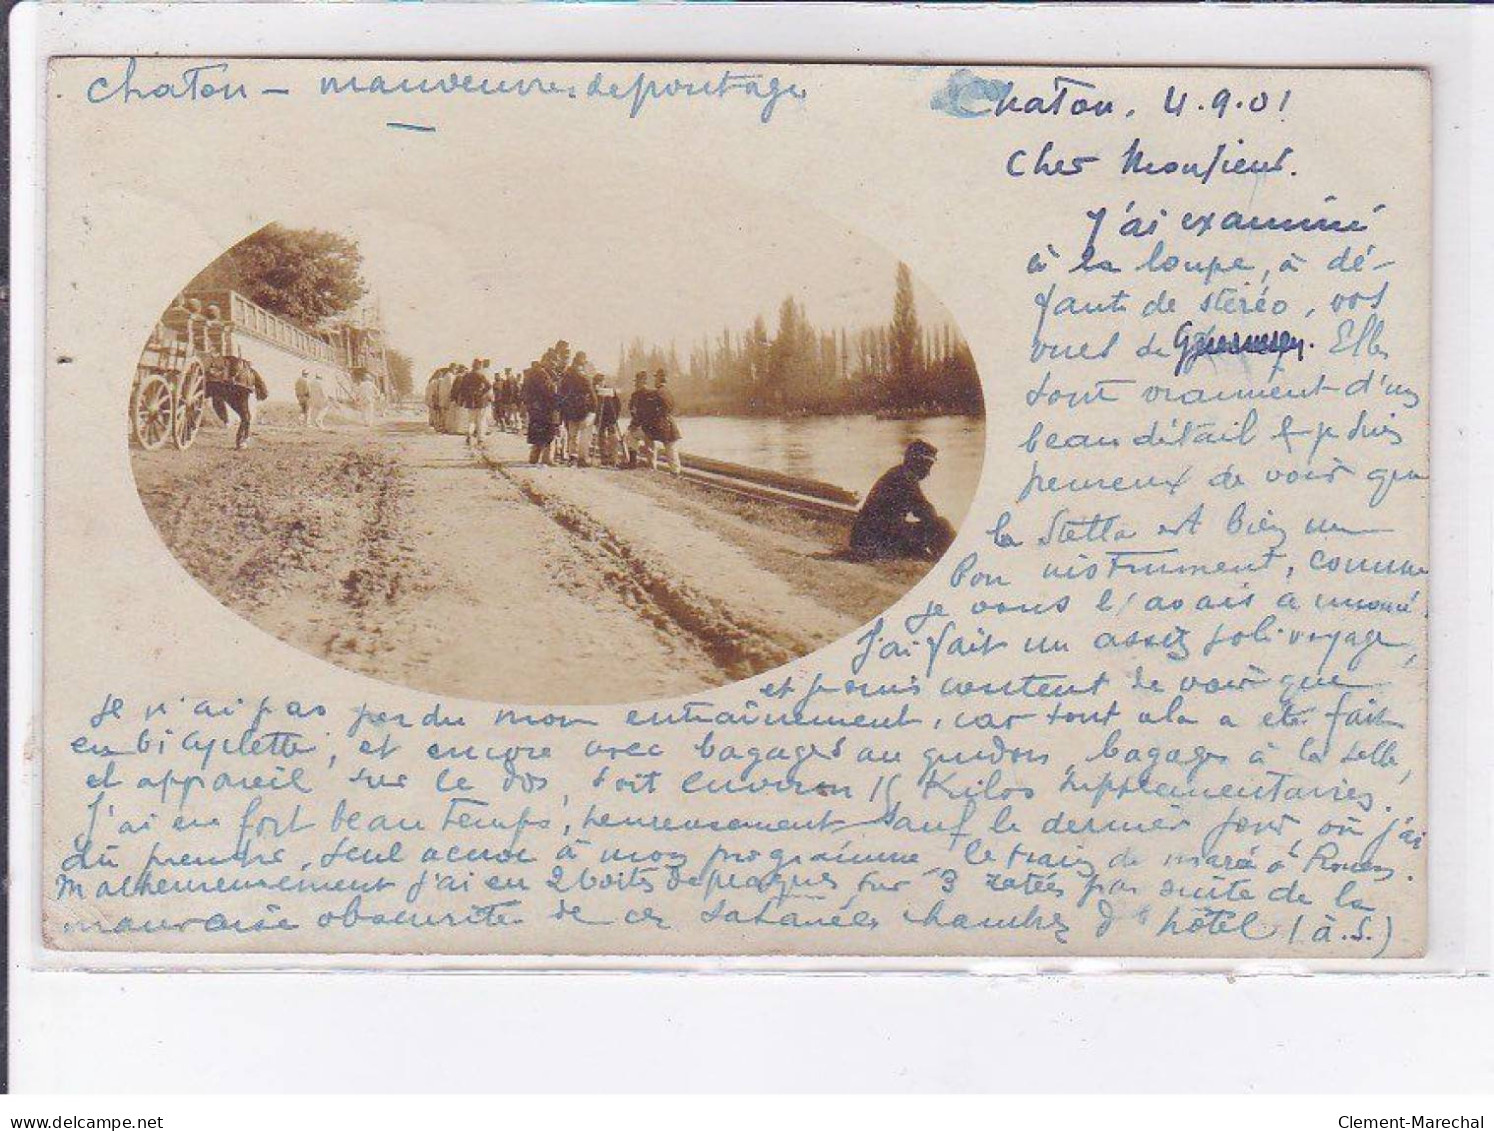 Chatou - manoeuvres de pontage
Chatou. 4.9.01
Cher Monsieur.
J'ai examiné
à la loupe, à dé-
faut de stéréo, vos
vues de Guernesey. Elles
sont vraiment d'un
beau détail & je suis
heureux de voir que
la Stella est bien un
bon instrument, comme
je vous l'avais annoncé.
J'ai fait un assez joli voyage,
et je suis content de voir que
je n'ai pas perdu mon entraînement, car tout cela a été fait
en bicyclette, et encore avec bagages au guidon, bagages à la selle,
et appareil sur le dos, soit environ 15 Kilos supplémentaires.
J'ai eu fort beau temps, heureusement sauf le dernier jour, où j'ai
dû prendre, seul accroc à mon programme le train de marée à Rouen.
Malheureusement j'ai eu 2 boites de plaques sur 3 ratées par suite de la
mauvaise obscurité de ces satanées chambres d'hôtel (à.S.)
Clement-Marechal
www.delcampe.net